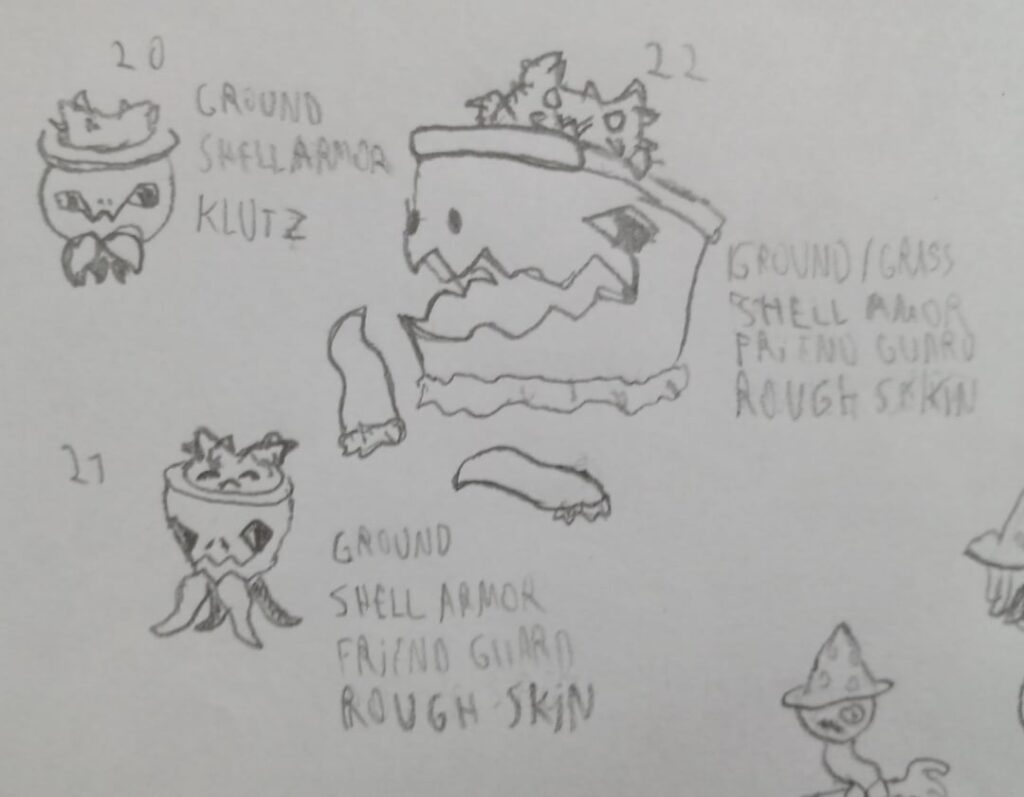 20
GROUND
SHELL ARMOR
KLUTZ
22
GROUND/GRASS
SHELL AMOR
FRiEND GUARD
ROUGH SKKiN
21
GROUND
SHELL ARMOR
FRiEND GUARD
ROUGH SKiN